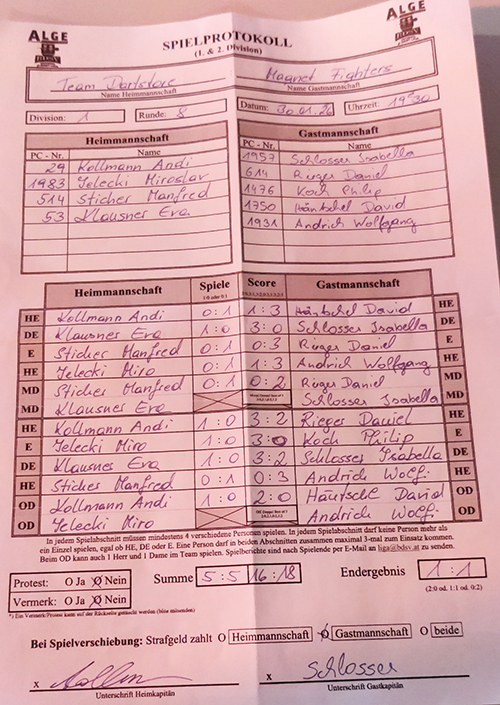 ALGE
ALGE
SPIELPROTOKOLL
(1. & 2. Division)
Team Dartstore
Magnet Fighters
Name Heimmannschaft
Name Gastmannschaft
Division: 1 Runde: 8 Datum: 30.01.26 Uhrzeit: 19:30
Heimmannschaft
Gastmannschaft
PC - Nr. Name PC - Nr. Name
29 Kollmann Andi 1957 Schlosser Isabella
1983 Jelecki Miroslav 614 Rieger Daniel
514 Sticher Manfred 1476 Koch Philip
53 Klausner Eva 1750 Häntschel David
1931 Andrich Wolfgang
Heimmannschaft Spiele Score Gastmannschaft
1:0 oder 0:1
HE Kollmann Andi 0:1 1:3 Häntschel David HE
DE Klausner Eva 1:0 3:0 Schlosser Isabella DE
E Sticher Manfred 0:1 0:3 Rieger Daniel E
HE Jelecki Miro 0:1 1:3 Andrich Wolfgang HE
MD Sticher Manfred 0:1 0:2 Rieger Daniel MD
MD Klausner Eva Schlosser Isabella MD
HE Kollmann Andi 1:0 3:2 Rieger Daniel HE
E Jelecki Miro 1:0 3:0 Koch Philip E
DE Klausner Eva 1:0 3:2 Schlosser Isabella DE
HE Sticher Manfred 0:1 0:3 Andrich Wolfi. HE
OD Kollmann Andi 1:0 2:0 Häntschel David OD
OD Jelecki Miro Andrich Wolfi. OD
In jedem Spielabschnitt müssen mindestens 4 verschiedene Personen spielen. In jedem Spielabschnitt darf keine Person mehr als
ein Einzel spielen, egal ob HE, DE oder E. Eine Person darf in beiden Abschnitten zusammen maximal 3-mal zum Einsatz kommen.
Beim OD kann auch 1 Herr und 1 Dame im Team spielen. Spielberichte sind nach Spielende per E-Mail an liga@bdsv.at zu senden.
Protest: O Ja O Nein Summe 5:5 16:18 Endergebnis 1:1
Vermerk: O Ja O Nein (2:0 od. 1:1 od. 0:2)
*) Ein Vermerk/Protest kann auf der Rückseite gemacht werden (bitte ankreuzen)
Bei Spielverschiebung: Strafgeld zahlt O Heimmannschaft O Gastmannschaft O beide
x Kollmann x Schlosser
Unterschrift Heimkapitän Unterschrift Gastkapitän